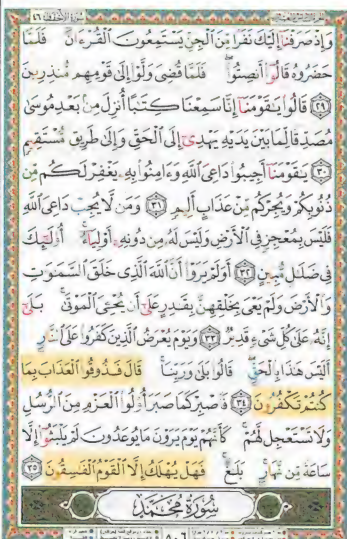 سُورَةُ الْأَحْقَافِ ٤٦
وَإِذْ صَرَفْنَا إِلَيْكَ نَفَرًا مِّنَ الْجِنِّ يَسْتَمِعُونَ الْقُرْءَانَ فَلَمَّا
حَضَرُوهُ قَالُوا أَنصِتُوا فَلَمَّا قُضِيَ وَلَّوْا إِلَىٰ قَوْمِهِم مُّنذِرِينَ
٢٩ قَالُوا يَٰقَوْمَنَا إِنَّا سَمِعْنَا كِتَٰبًا أُنزِلَ مِن بَعْدِ مُوسَىٰ
مُصَدِّقًا لِّمَا بَيْنَ يَدَيْهِ يَهْدِي إِلَى الْحَقِّ وَإِلَىٰ طَرِيقٍ مُّسْتَقِيمٍ
٣٠ يَٰقَوْمَنَا أَجِيبُوا دَاعِيَ اللَّهِ وَءَامِنُوا بِهِ يَغْفِرْ لَكُم مِّن
ذُنُوبِكُمْ وَيُجِرْكُم مِّنْ عَذَابٍ أَلِيمٍ ٣١ وَمَن لَّا يُجِبْ دَاعِيَ اللَّهِ
فَلَيْسَ بِمُعْجِزٍ فِي الْأَرْضِ وَلَيْسَ لَهُ مِن دُونِهِ أَوْلِيَاءُ أُولَٰئِكَ
فِي ضَلَٰلٍ مُّبِينٍ ٣٢ أَوَلَمْ يَرَوْا أَنَّ اللَّهَ الَّذِي خَلَقَ السَّمَٰوَٰتِ
وَالْأَرْضَ وَلَمْ يَعْيَ بِخَلْقِهِنَّ بِقَٰدِرٍ عَلَىٰ أَن يُحْـِۧيَ الْمَوْتَىٰ بَلَىٰ
إِنَّهُ عَلَىٰ كُلِّ شَيْءٍ قَدِيرٌ ٣٣ وَيَوْمَ يُعْرَضُ الَّذِينَ كَفَرُوا عَلَى النَّارِ
أَلَيْسَ هَٰذَا بِالْحَقِّ قَالُوا بَلَىٰ وَرَبِّنَا قَالَ فَذُوقُوا الْعَذَابَ بِمَا
كُنتُمْ تَكْفُرُونَ ٣٤ فَاصْبِرْ كَمَا صَبَرَ أُولُوا الْعَزْمِ مِنَ الرُّسُلِ
وَلَا تَسْتَعْجِل لَّهُمْ كَأَنَّهُمْ يَوْمَ يَرَوْنَ مَا يُوعَدُونَ لَمْ يَلْبَثُوا إِلَّا
سَاعَةً مِّن نَّهَارٍ بَلَٰغٌ فَهَلْ يُهْلَكُ إِلَّا الْقَوْمُ الْفَٰسِقُونَ ٣٥
سُورَةُ مُحَمَّدٍ
٥٠٦